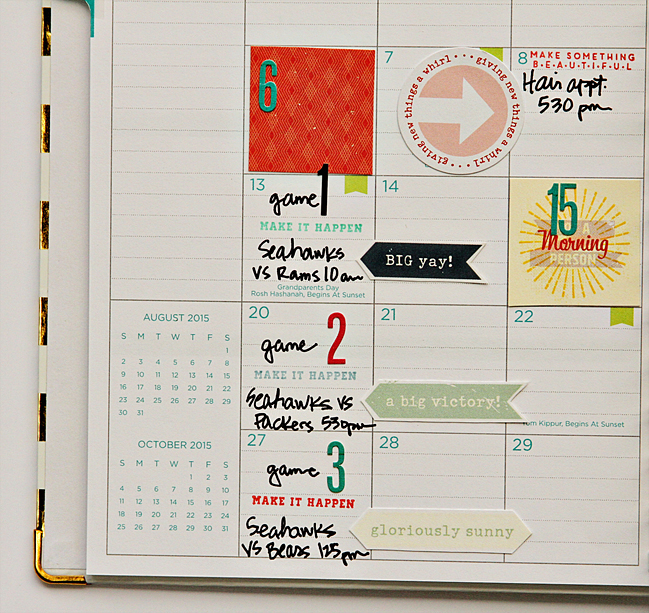 6
7
giving new things a whirl
giving new things a whirl
8 MAKE SOMETHING
B·E·A·U·T·I·F·U·L
Hair appt.
530 pm
13
game 1
MAKE IT HAPPEN
Seahawks
vs Rams 10 am
Grandparents Day
Rosh Hashanah, Begins At Sunset
14
BIG yay!
15
A
Morning
PERSON
AUGUST 2015
S M T W T F S
1
2 3 4 5 6 7 8
9 10 11 12 13 14 15
16 17 18 19 20 21 22
23 24 25 26 27 28 29
30 31
20
game 2
MAKE IT HAPPEN
Seahawks vs
Packers 530pm
21
a big victory!
22
Yom Kippur, Begins At Sunset
OCTOBER 2015
S M T W T F S
1 2 3
4 5 6 7 8 9 10
11 12 13 14 15 16 17
18 19 20 21 22 23 24
25 26 27 28 29 30 31
27
game 3
MAKE IT HAPPEN
Seahawks
vs Bears 125pm
28
gloriously sunny
29